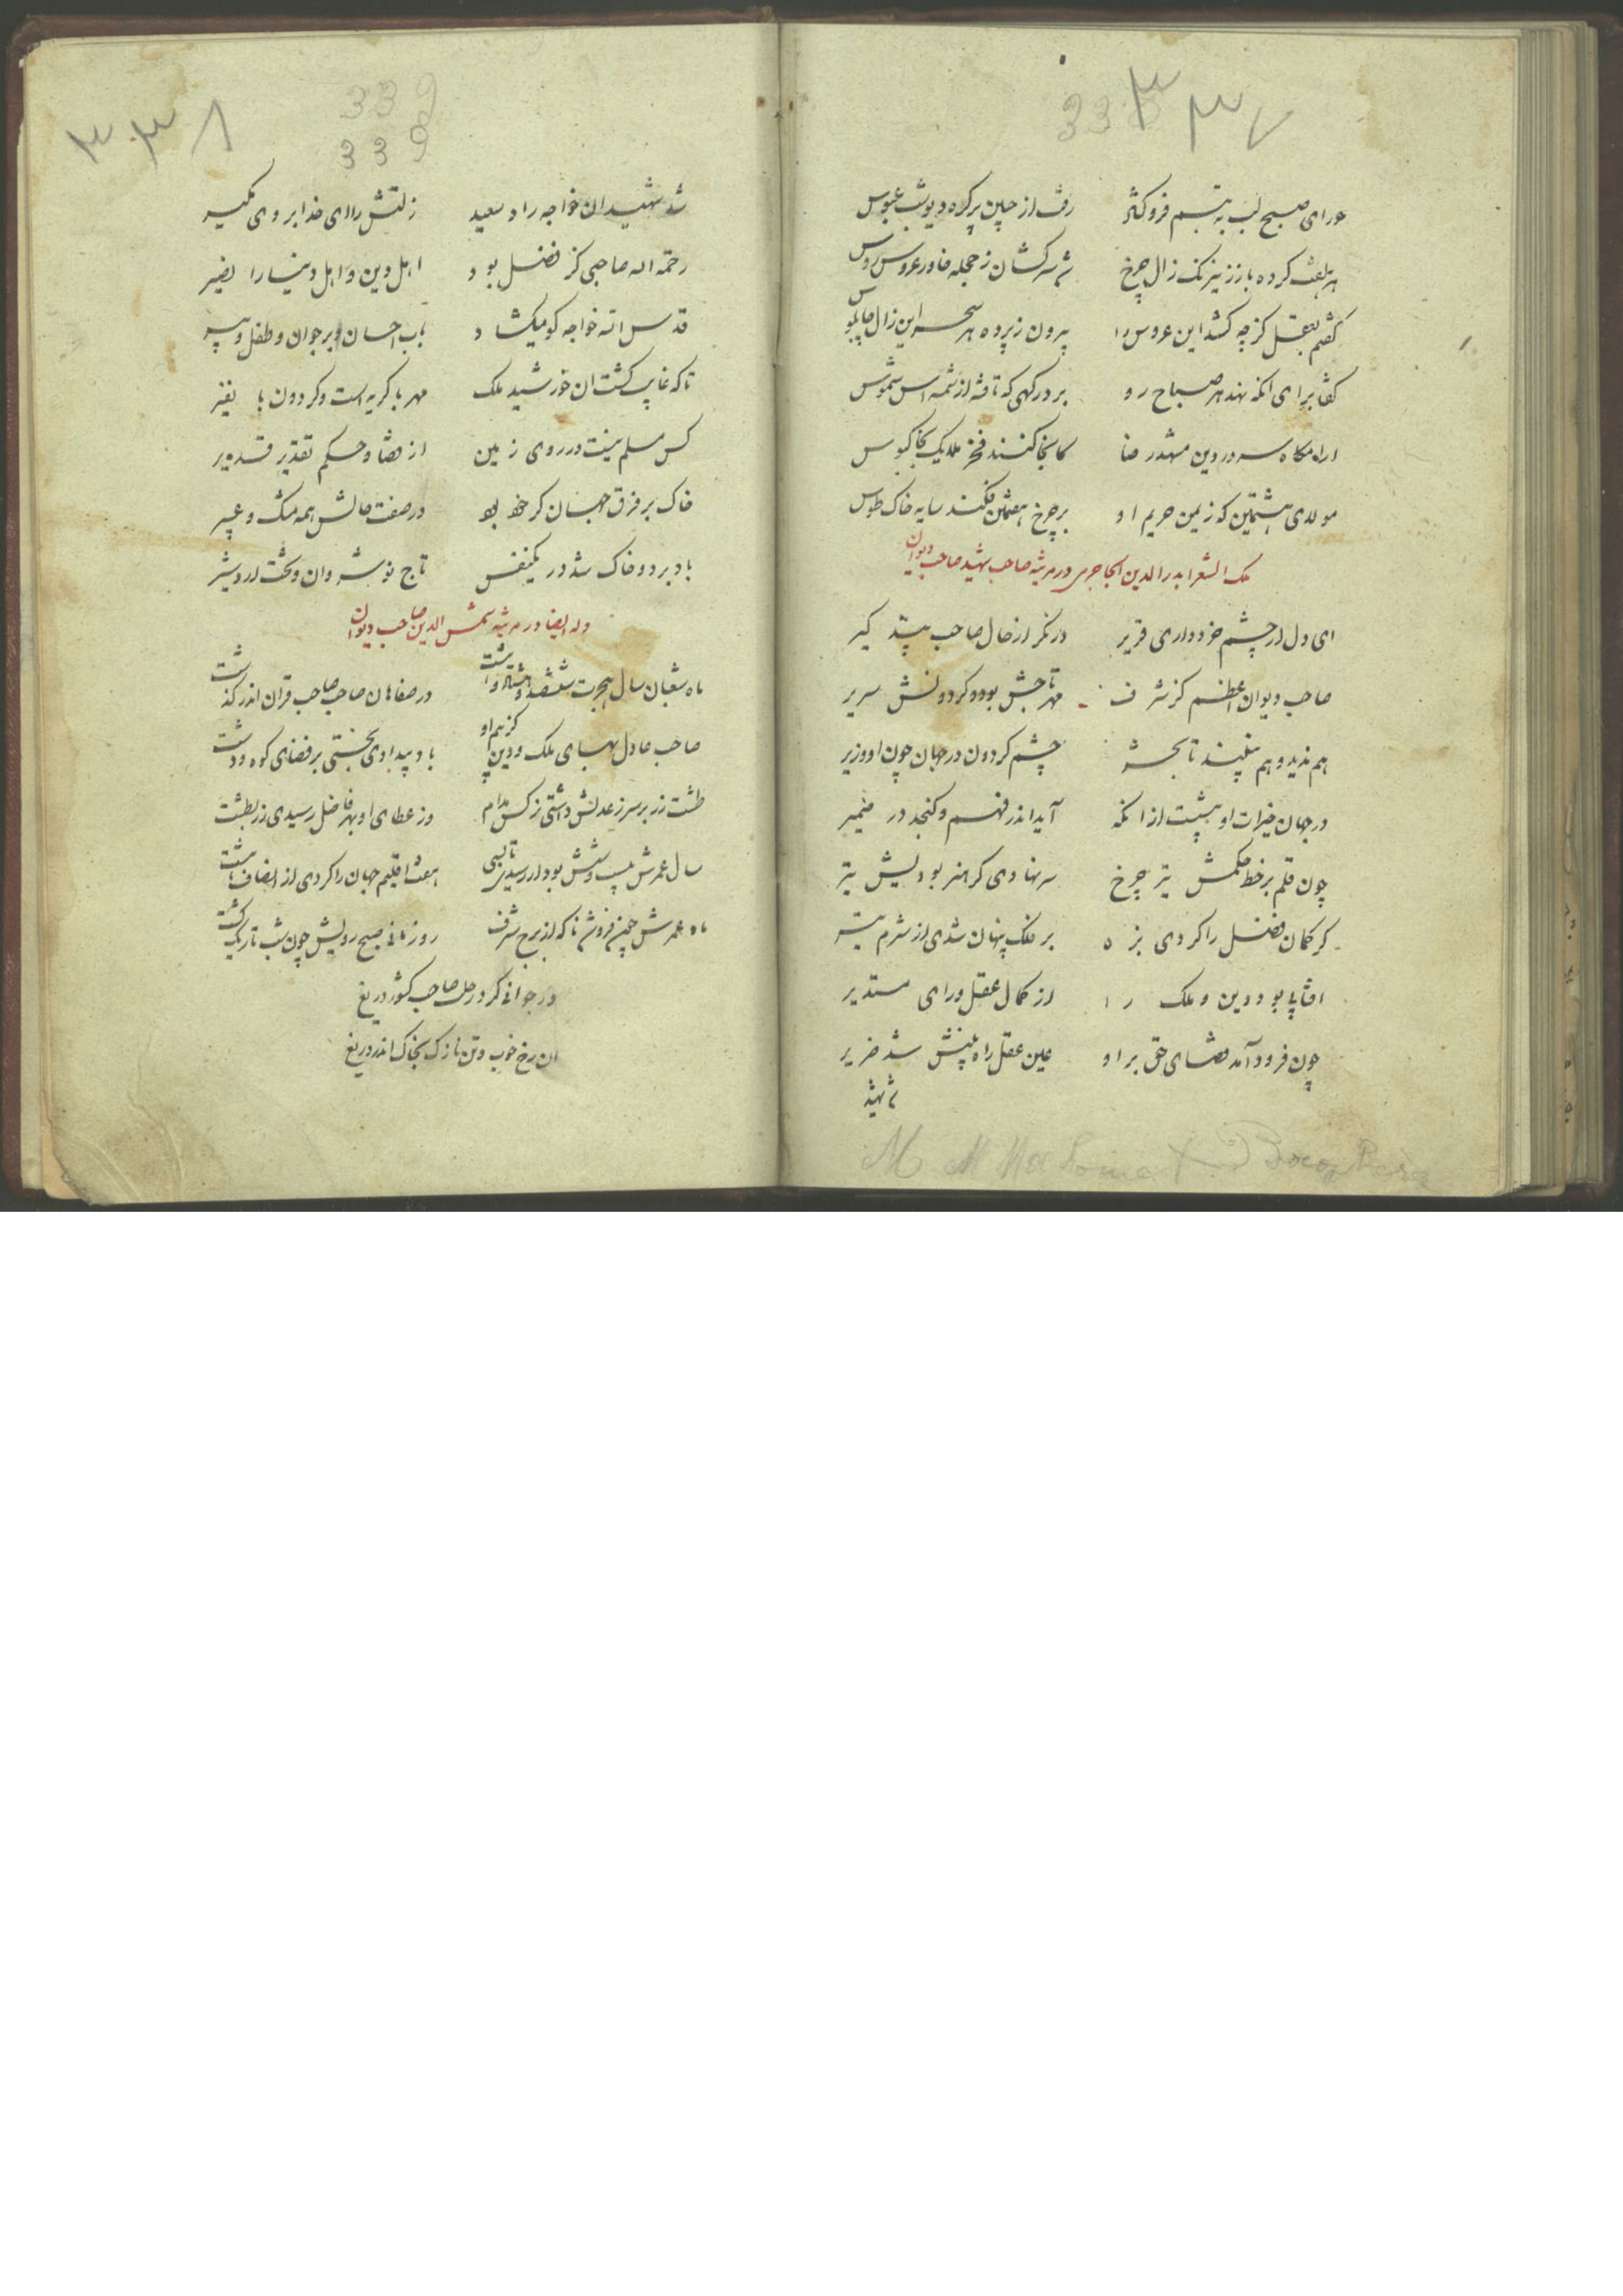 ۳۳۷
حورای صبح لب به تبسم فرو کشود رفت از جبین پر کره دیو شب عبوس
هر هفت کرده باز ز نیرنک زال چرخ شد سرکشان ز حجله خاور عروس روس
کفتم بعقل کز چه کشد این عروس را بیرون ز پرده هر سحر این زال چاپلوس
کفتا برای انکه نهد هر صباح رو بر درکهی که تافته از شمسه اش شموس
ارامکاه سرور دین مشهد رضا کانجا کنند فخر ملایک بخاکبوس
مولای هشتمین که ز یمن حریم او بر چرخ هفتمین فکند سایه خاک طوس
ملک الشعرا بدر الدین الجاجرمی در مرثیه صاحب شهید صاحب دیوان
ای دل ار چشم خرد داری قریر درنکر از حال صاحب پند کیر
صاحب دیوان اعظم کز شرف مهر تاجش بود و کردونش سریر
هم ندید و هم نبیند تا بحشر چشم کردون در جهان چون او وزیر
در جهان خیرات او بیشست از انکه آید اندر فهم و کنجد در ضمیر
چون قلم بر خط حکمش تیر چرخ سر نهادی کر هنر بودیش تیر
کر کمان فضل را کردی بزه بر فلک پنهان شدی از شرم تیر
افتابا بود دین و ملک را از کمال عقل و رای مستدیر
چون فرود آمد قضای حق بر او عین عقل راه بینش شد ضریر
شد شهید
۳۳۸
339
339
شد شهید ان خواجه راد سعید زلتش را ای خدا بر وی مکیر
رحمة اله صاحبی کز فضل بود اهل دین و اهل دنیا را نصیر
قدس الله خواجه کو میکشاد باب احسان بر جوان و طفل و پیر
تا که غایب کشت ان خورشید ملک مهر با کریه است و کردون با نفیر
کس مسلم نیست در روی زمین از قضا و حکم تقدیر قدیر
خاک بر فرق جهان کر خود بود در صفت خاکش همه مشک و عبیر
باد برد و خاک شد در یکنفس تاج نوشروان و تخت اردشیر
وله ایضا در مرثیه شمس الدین صاحب دیوان
ماه شعبان سال هجرت ششصد و هشتاد و هشت در صفاهان صاحب صاحب قران اندر کذشت
صاحب عادل بهای ملک و دین کز بیم او باد بیدادی نجستی بر فضای کوه و دشت
طشت زر بر سر ز عدلش داشتی نرکس مدام وز عطای او بهر فاضل رسیدی زر بطشت
سال عمرش بیست و شش بود ار رسیدی تا بسی هفت اقلیم جهان را کردی از انصاف هشت
ماه عمرش چون فرو شد ناکه از برج شرف روز نورانی صبح رویش چون شب تاریک کشت
در جوانی کرد رحلت صاحب کشور دریغ
ان رخ خوب و تن نازک بخاک اندر دریغ